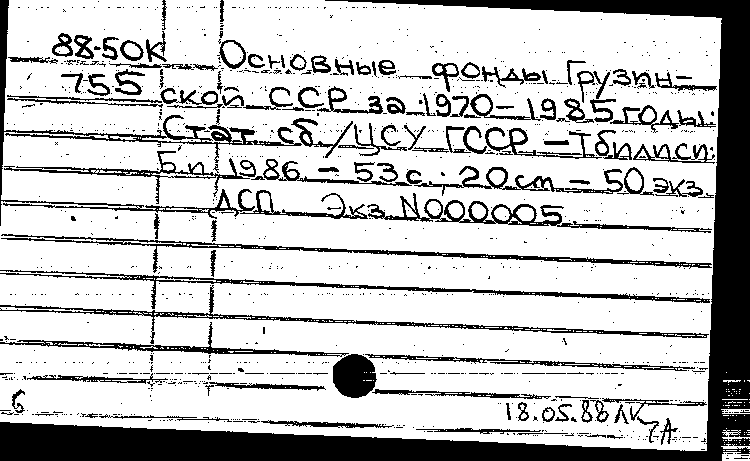 88-50К Основные фонды Грузин-
755 ской ССР за 1970-1985 годы:
Стат сб. / ЦСУ ГССР. - Тбилиси:
Б.и. 1986. - 53 с.; 20 см - 50 экз.
ДСП. Экз. N000005.
18.05.88 ЛК
б